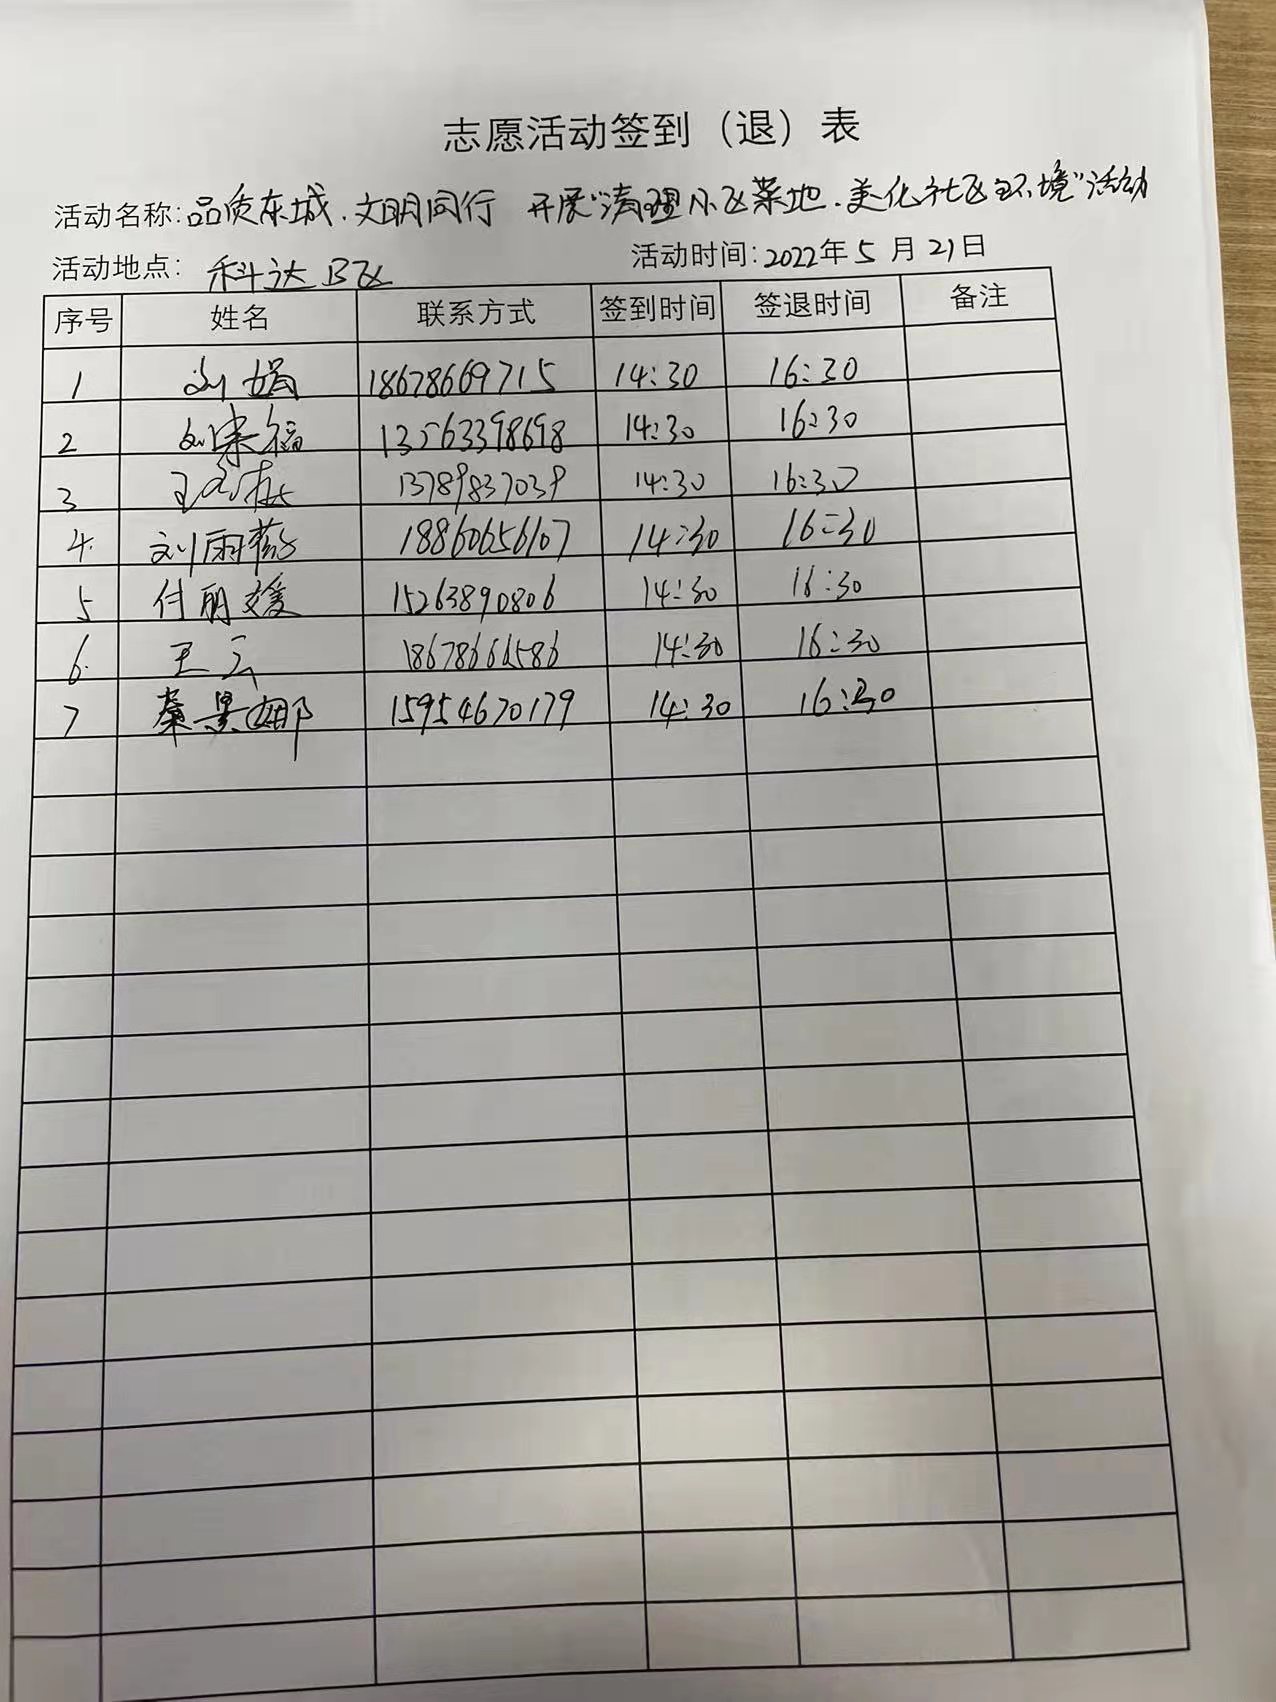 志愿活动签到（退）表
活动名称：品质东城.文明同行 开展"清理小区菜地.美化社区环境"活动
活动地点：科达B区 活动时间：2022年5月21日
序号 姓名 联系方式 签到时间 签退时间 备注
1 刘娟 18678669715 14:30 16:30
2 刘来福 13563398698 14:30 16:30
3 13789837039 14:30 16:30
4. 刘雨薇 18860656107 14:30 16:30
5 付丽媛 15263890806 14:30 16:30
6. 王云 18678666586 14:30 16:30
7 秦昊娜 15954670179 14:30 16:30